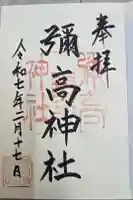 奉拝
彌高神社
令和七年二月十七日